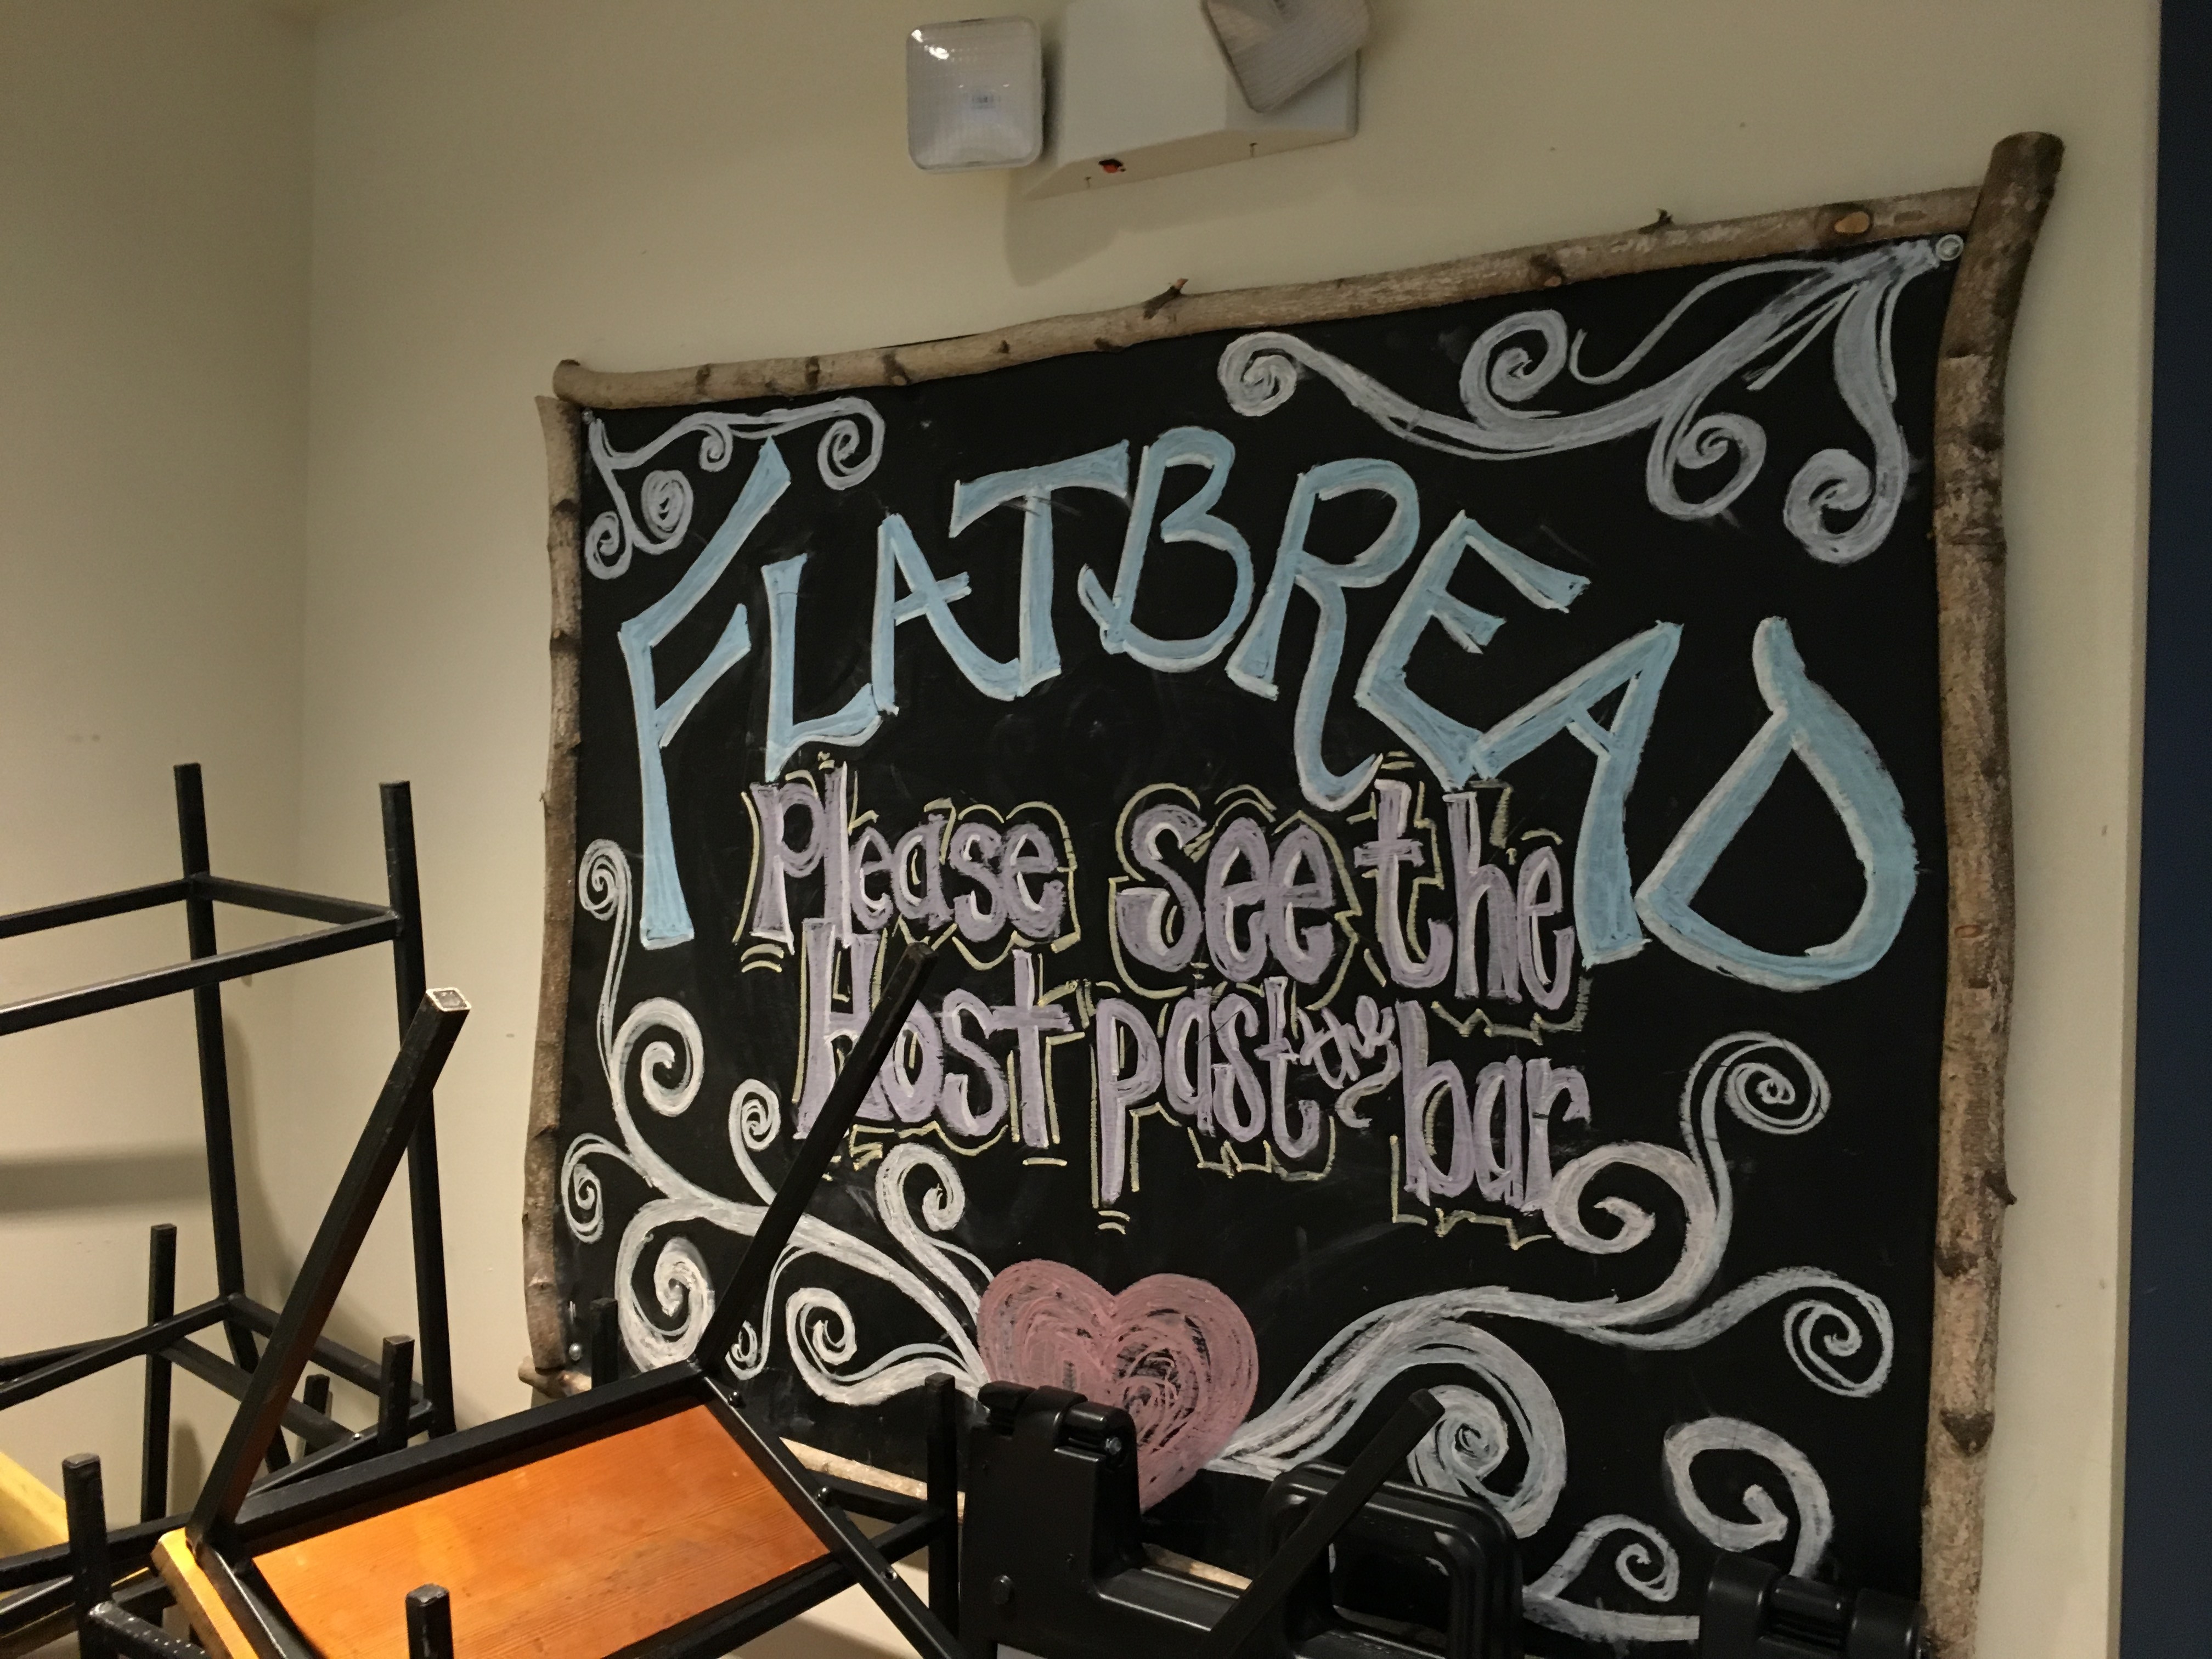 FLATBREAD
Please see the
Host past the bar